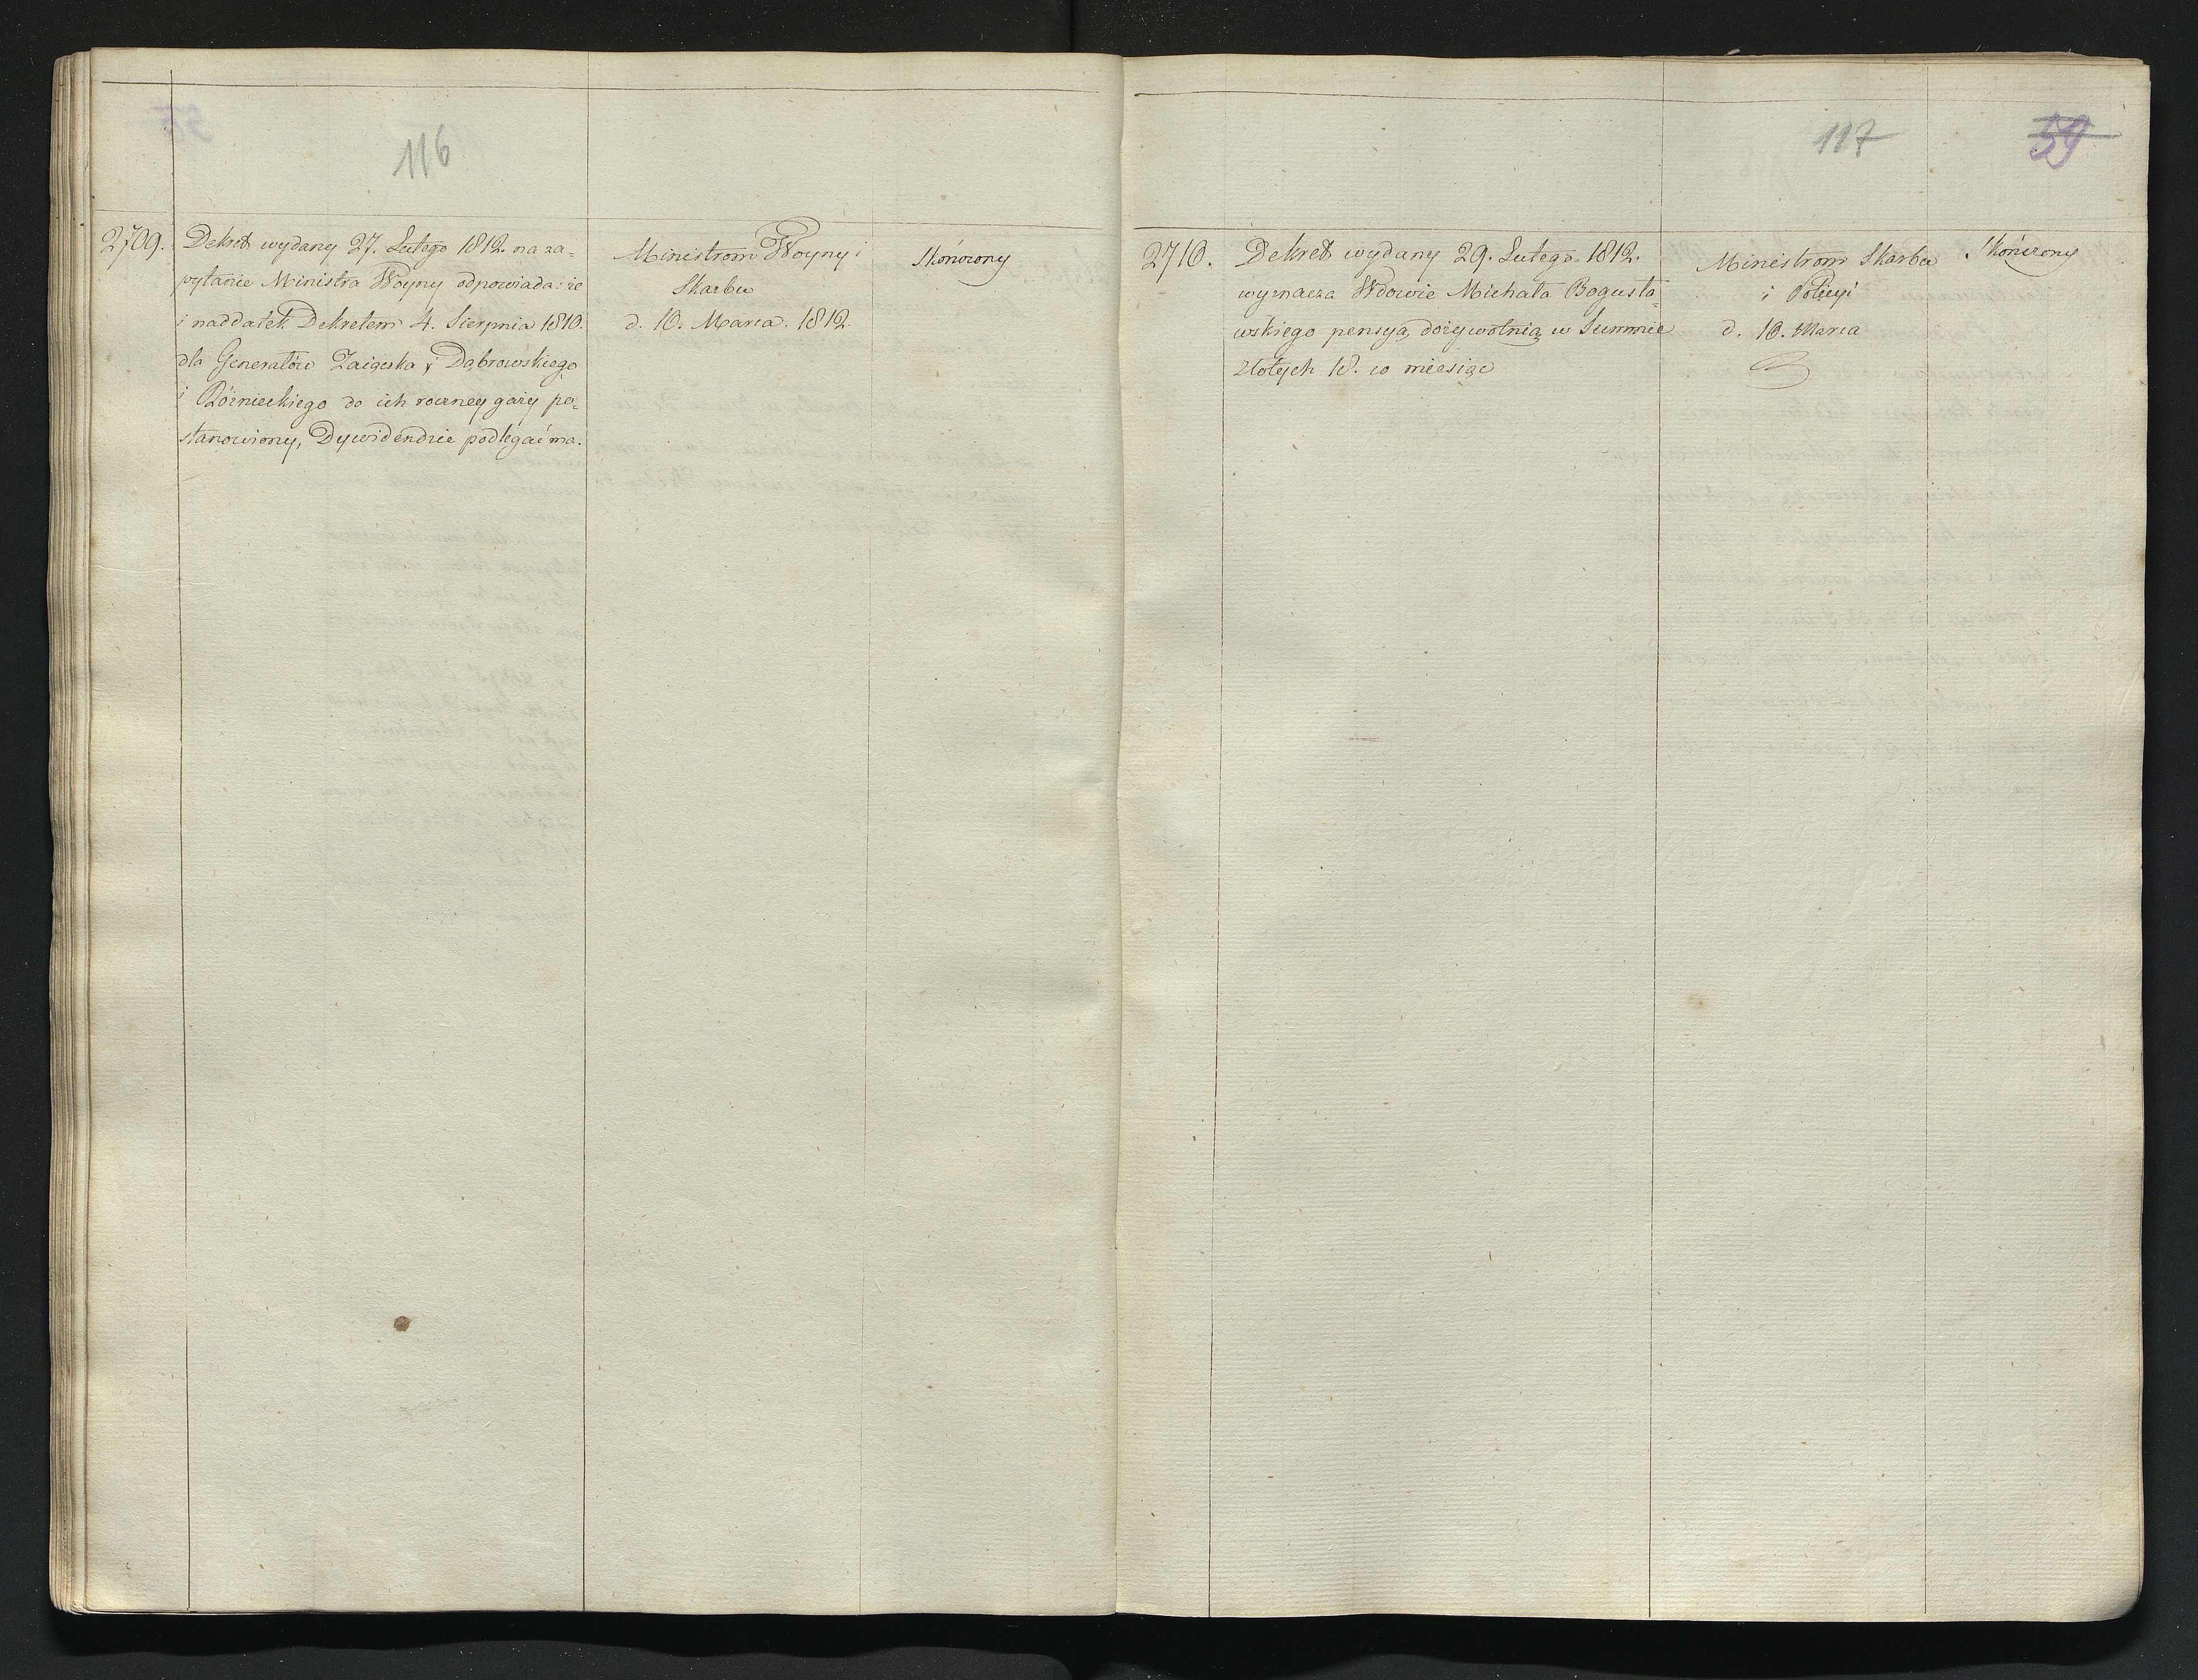 116
2709.
Dekret wydany 27. Lutego 1812. na za-
pytanie Ministra Woyny odpowiada: że
i naddatek Dekretem 4. Sierpnia 1810.
dla Generałów Zaiączka, Dąbrowskiego
i Różnieckiego do ich roczney gaży po-
stanowiony, Dywidendzie podlegać ma.
Ministrom Woyny i
Skarbu
d. 10. Marca. 1812.
Skończony
117
59
2710.
Dekret wydany 29. Lutego 1812.
wyznacza Wdowie Michała Bogusła-
wskiego pensyą dożywotnią w Summie
złotych 18. co miesiąc
Ministrom Skarbu
i Policyi
d. 10. Marca
Skończony